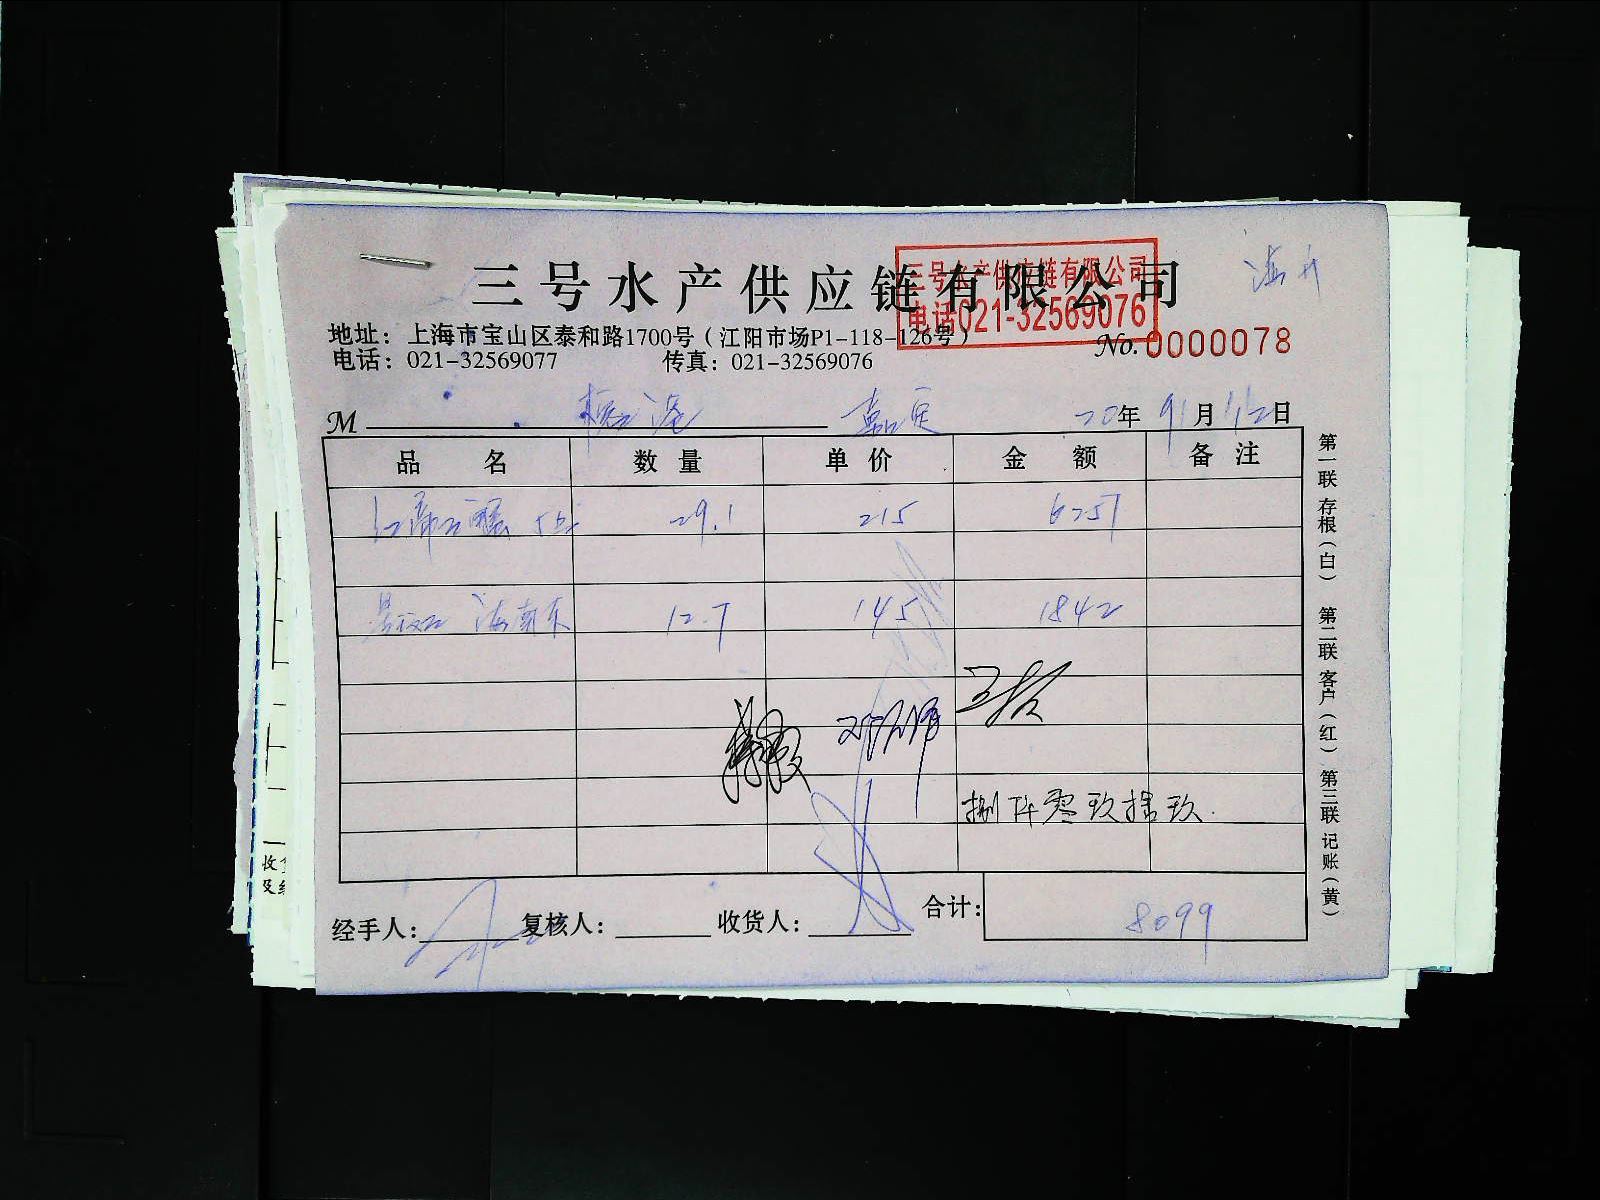 三号水产供应链有限公司
三号水产供应链有限公司
电话021-32569076
地址：上海市宝山区泰和路1700号（江阳市场P1-118-126号）
电话：021-32569077 传真：021-32569076
No.0000078
M 嘉定 20年 月 日
品名 数量 单价 金额 备注
29.1 215 6257
海南 12.7 145 1842
捌仟零玖拾玖
经手人： 复核人： 收货人： 合计： 8099
第一联 存根（白） 第二联 客户（红） 第三联 记账（黄）